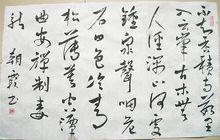 不知香積寺數里
入雲峰古木無
人徑深山何處
鐘泉聲咽危
石日色冷青
松薄暮空潭
曲安禪制毒
龍 朝霞书